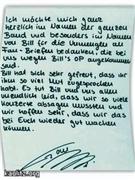 Ich möchte mich ganz
herzlich im Namen der ganzen
Band und besonders im Namen
von Bill für die Unmengen an
Fan-Briefen bedanken, die bei
uns wegen Bill's OP angekommen
sind.
Bill hat sich sehr gefreut, dass ihr
ihm so viel Mut zugesprochen
habt. Es tut Bill und uns allen
unendlich leid, dass wir so viele
Konzerte absagen mussten und
wir hoffen sehr, dass wir das
bei Euch wieder gut machen
können.